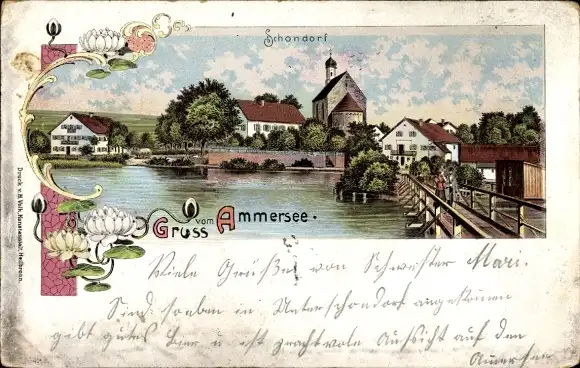 Schondorf
Gruss vom Ammersee.
Druck v. H. Volk, Kunstanstalt, Heilbronn.
Viele Grüße von Schwester Mari.
Sind soeben in Unterschondorf angekomen
gibt gutes Bier u ist prachtvole Aussicht auf den
Amersee